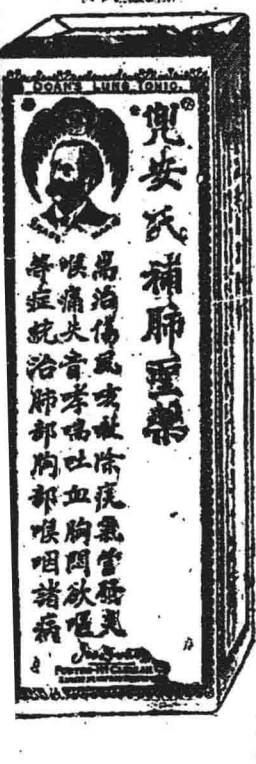 DOAN'S LUNG TONIC.
兜安氏補肺聖藥
治傷風咳嗽除痰氣管發炎
喉痛失音哮喘吐血胸悶欲嘔
等症統治肺部胸部喉咽諸病
FOSTER McCLELLAN